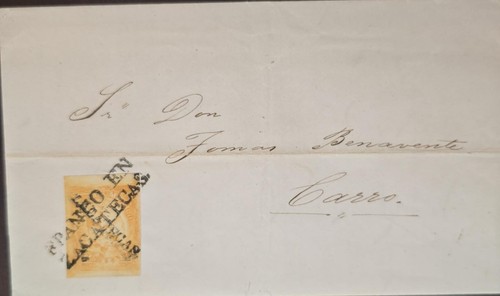 Sr. Don
Tomas Benavente
Carro.
FRANCO EN
ZACATECAS